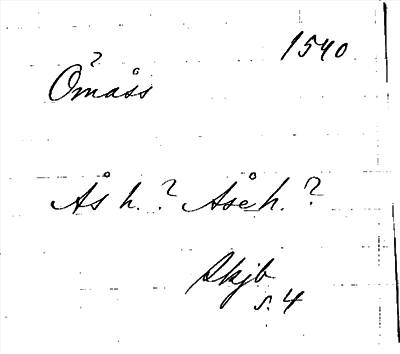 1540
Ömåss
?
Ås h. ? Åse h. ?
Skjb
s. 4